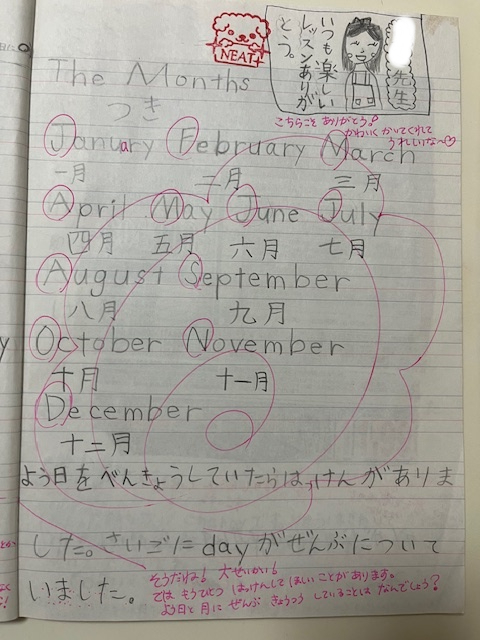 NEAT!
いつも楽しい
レッスンありが
とう。
先生
こちらこそ ありがとう!
かわいく かいてくれて
うれしいな〜♡
The Months
つき
January February March
一月 二月 三月
April May June July
四月 五月 六月 七月
August September
八月 九月
October November
十月 十一月
December
十二月
よう日をべんきょうしていたらはっけんがありま
した。さいごにdayがぜんぶについて
いました。
そうだね! 大せいかい!
では もうひとつ はっけんして ほしい ことが あります。
よう日と 月に ぜんぶ きょうつう していることは なんでしょう?